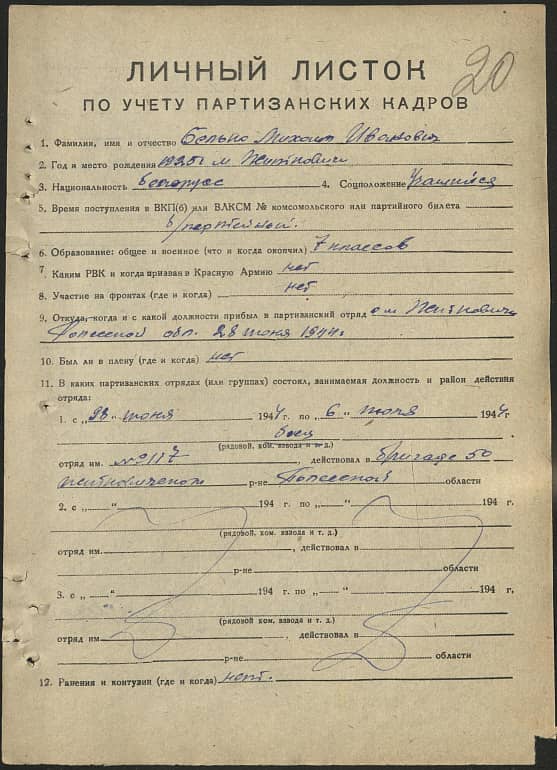 20
ЛИЧНЫЙ ЛИСТОК
ПО УЧЕТУ ПАРТИЗАНСКИХ КАДРОВ
1. Фамилия, имя и отчество Белько Михаил Иванович
2. Год и место рождения 1925 г м. Житковичи
3. Национальность белорус 4. Соцположение Учащийся
5. Время поступления в ВКП(б) или ВЛКСМ № комсомольского или партийного билета
б/партейный.
6. Образование: общее и военное (что и когда окончил) 7 классов
7. Каким РВК и когда призван в Красную Армию нет
8. Участие на фронтах (где и когда) нет
9. Откуда, когда и с какой должности прибыл в партизанский отряд с м Житковичи
Полесской обл. 28 июня 1944 г
10. Был ли в плену (где и когда) нет
11. В каких партизанских отрядах (или группах) состоял, занимаемая должность и район действия
отряда:
1. с „28“ июня 1944 г. по „6“ июля 1944 г
боец
(рядовой, ком. взвода и т. д.)
отряд им. № 117, действовал в бригаде 50
р-не Полесской области
2. с „ — “ 194 г. по „ — “ 194 г.
(рядовой, ком. взвода и т. д.)
отряд им. , действовал в
р-не области
3. с „ — “ 194 г. по „ — “ 194 г,
(рядовой, ком. взвода и т. д.)
отряд им , действовал в
р-не области
12. Ранения и контузии (где и когда) нет.